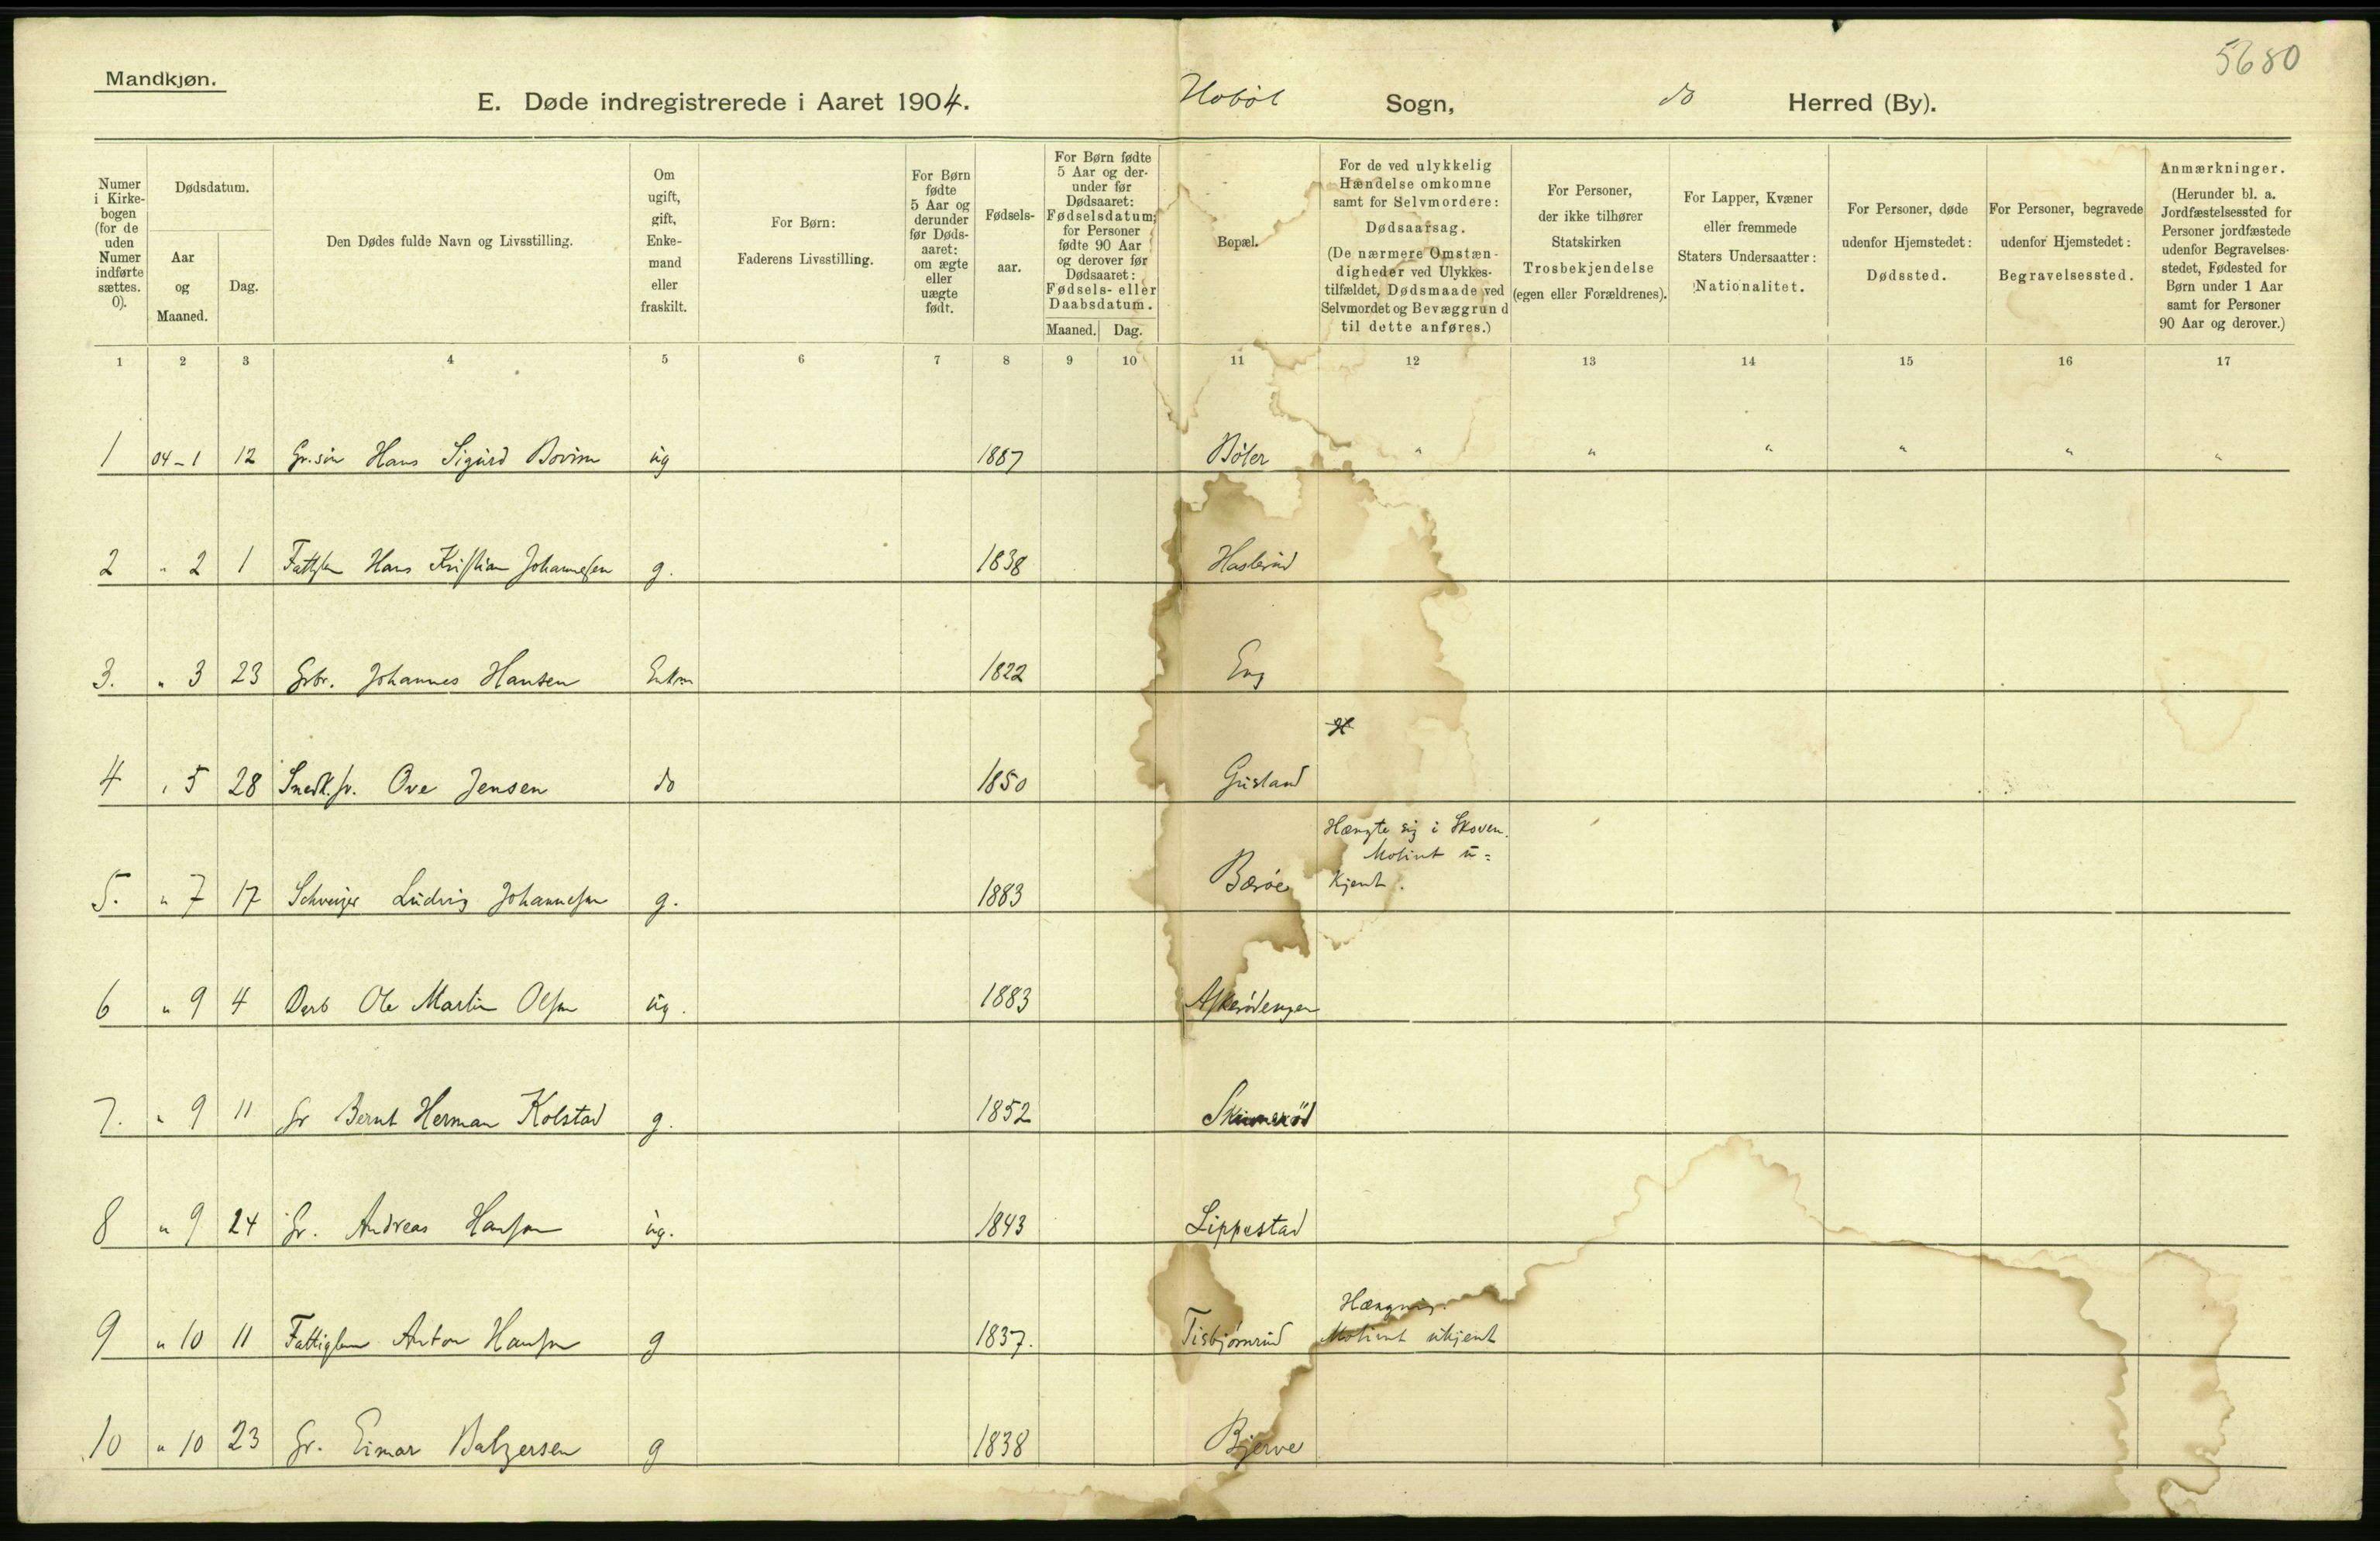 5680
Mandkjøn.
E. Døde indregistrerede i Aaret 1904. Hobøl Sogn, do Herred (By).
Numer i Kirke-bogen (for de uden Numer indførte sættes. 0).
Dødsdatum.
Aar og Maaned.
Dag.
Den Dødes fulde Navn og Livsstilling.
Om ugift, gift, Enke-mand eller fraskilt.
For Børn: Faderens Livsstilling.
For Børn fødte 5 Aar og derunder før Døds-aaret: om ægte eller uægte født.
Fødsels-aar.
For Børn fødte 5 Aar og der-under før Dødsaaret: Fødselsdatum; for Personer fødte 90 Aar og derover før Dødsaaret: Fødsels- eller Daabsdatum.
Maaned. Dag.
Bopæl.
For de ved ulykkelig Hændelse omkomne samt for Selvmordere: Dødsaarsag. (De nærmere Omstæn-digheder ved Ulykkes-tilfældet, Dødsmaade ved Selvmordet og Bevæggrund til dette anføres.)
For Personer, der ikke tilhører Statskirken Trosbekjendelse (egen eller Forældrenes).
For Lapper, Kvæner eller fremmede Staters Undersaatter: Nationalitet.
For Personer, døde udenfor Hjemstedet: Dødssted.
For Personer, begravede udenfor Hjemstedet: Begravelsessted.
Anmærkninger. (Herunder bl. a. Jordfæstelsessted for Personer jordfæstede udenfor Begravelses-stedet, Fødested for Børn under 1 Aar samt for Personer 90 Aar og derover.)
1 2 3 4 5 6 7 8 9 10 11 12 13 14 15 16 17
1 04-1 12 Gr.søn Hans Sigurd Bovim ug 1887 Bøler " " " " " "
2 " 2 1 Hans Kristian Johannesen g. 1838 Haslerud
3. " 3 23 Grbr. Johannes Hansen Enkm 1822 Eng
4 " 5 28 Snedk.sv. Ove Jensen do 1850 Grisland
Hængte sig i Skoven.
Motivet u=
5. " 7 17 Schweizer Ludvig Johannesen g. 1883 Bærøe kjent.
6 " 9 4 Ole Martin Olsen ug. 1883 Askerødengen
7. " 9 11 Gr Bernt Herman Kolstad g. 1852
8 " 9 24 Gr. Andreas Hansen ug. 1843 Lippestad
Hængning.
9 " 10 11 Fattiglem Anton Hansen g 1837. Tisbjørnrud Motivet ukjent
10 " 10 23 Gr. Eimar Balzersen g 1838 Bjerve